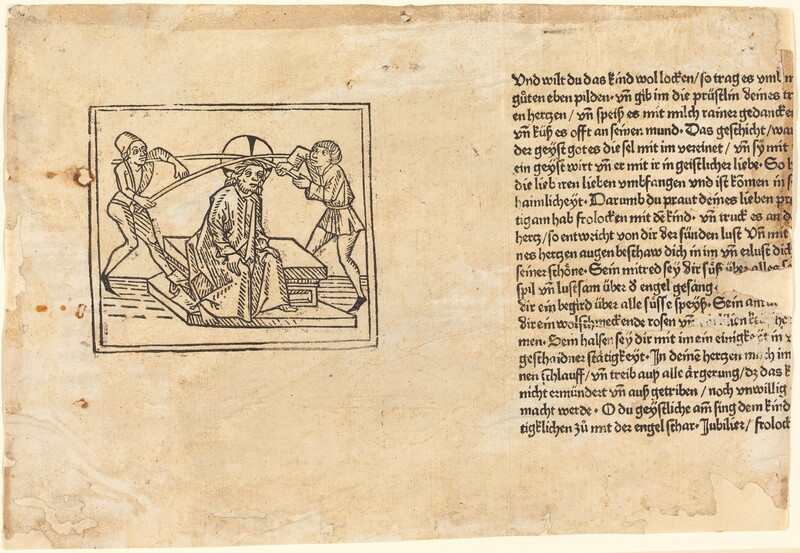 Vnd wilt du das kind wol locken/so trag es vml m
gůten eben pilden· vñ gib im die prüstlin deines tr
en hertzen/ vñ speiß es mit milch rainer gedancken
vñ küß es offt an seinen mund· Das geschicht/wan
der geyst gotes die sel mit im vereinet/ vñ sy mit
ein geyst wirt vñ er mit ir in geistlicher liebe· So h
die lieb iren lieben vmbfangen vnd ist kõmen in s
haimlicheyt· Darumb du praut deines lieben pr
tigam hab frolocken mit dẽ kind· vñ truck es an d
hertz/so entweicht von dir der sünden lust Vñ mit
nes hertzen augen beschaw dich in im vñ erlust dich
seiner schöne· Sein mitred sey dir süß über alles s
spil vñ lustsam über d engel gesang·
dir ein begird über alle süsse speyß· Sein
dir ein wolschmeckende rosen vñ
men· Sein halsen sey dir mit im ein einigkeyt in v
geschaidner stätigkeyt· In deinẽ hertzen mach im
nen schlauff/ vñ treib auß alle ärgerung/dz das k
nicht ermündert vñ auß getriben/ noch vnwillig
macht werde· O du geystliche am̃ sing dem kind
tigklichen zů mit der engel schar· Jubilier/ frolock